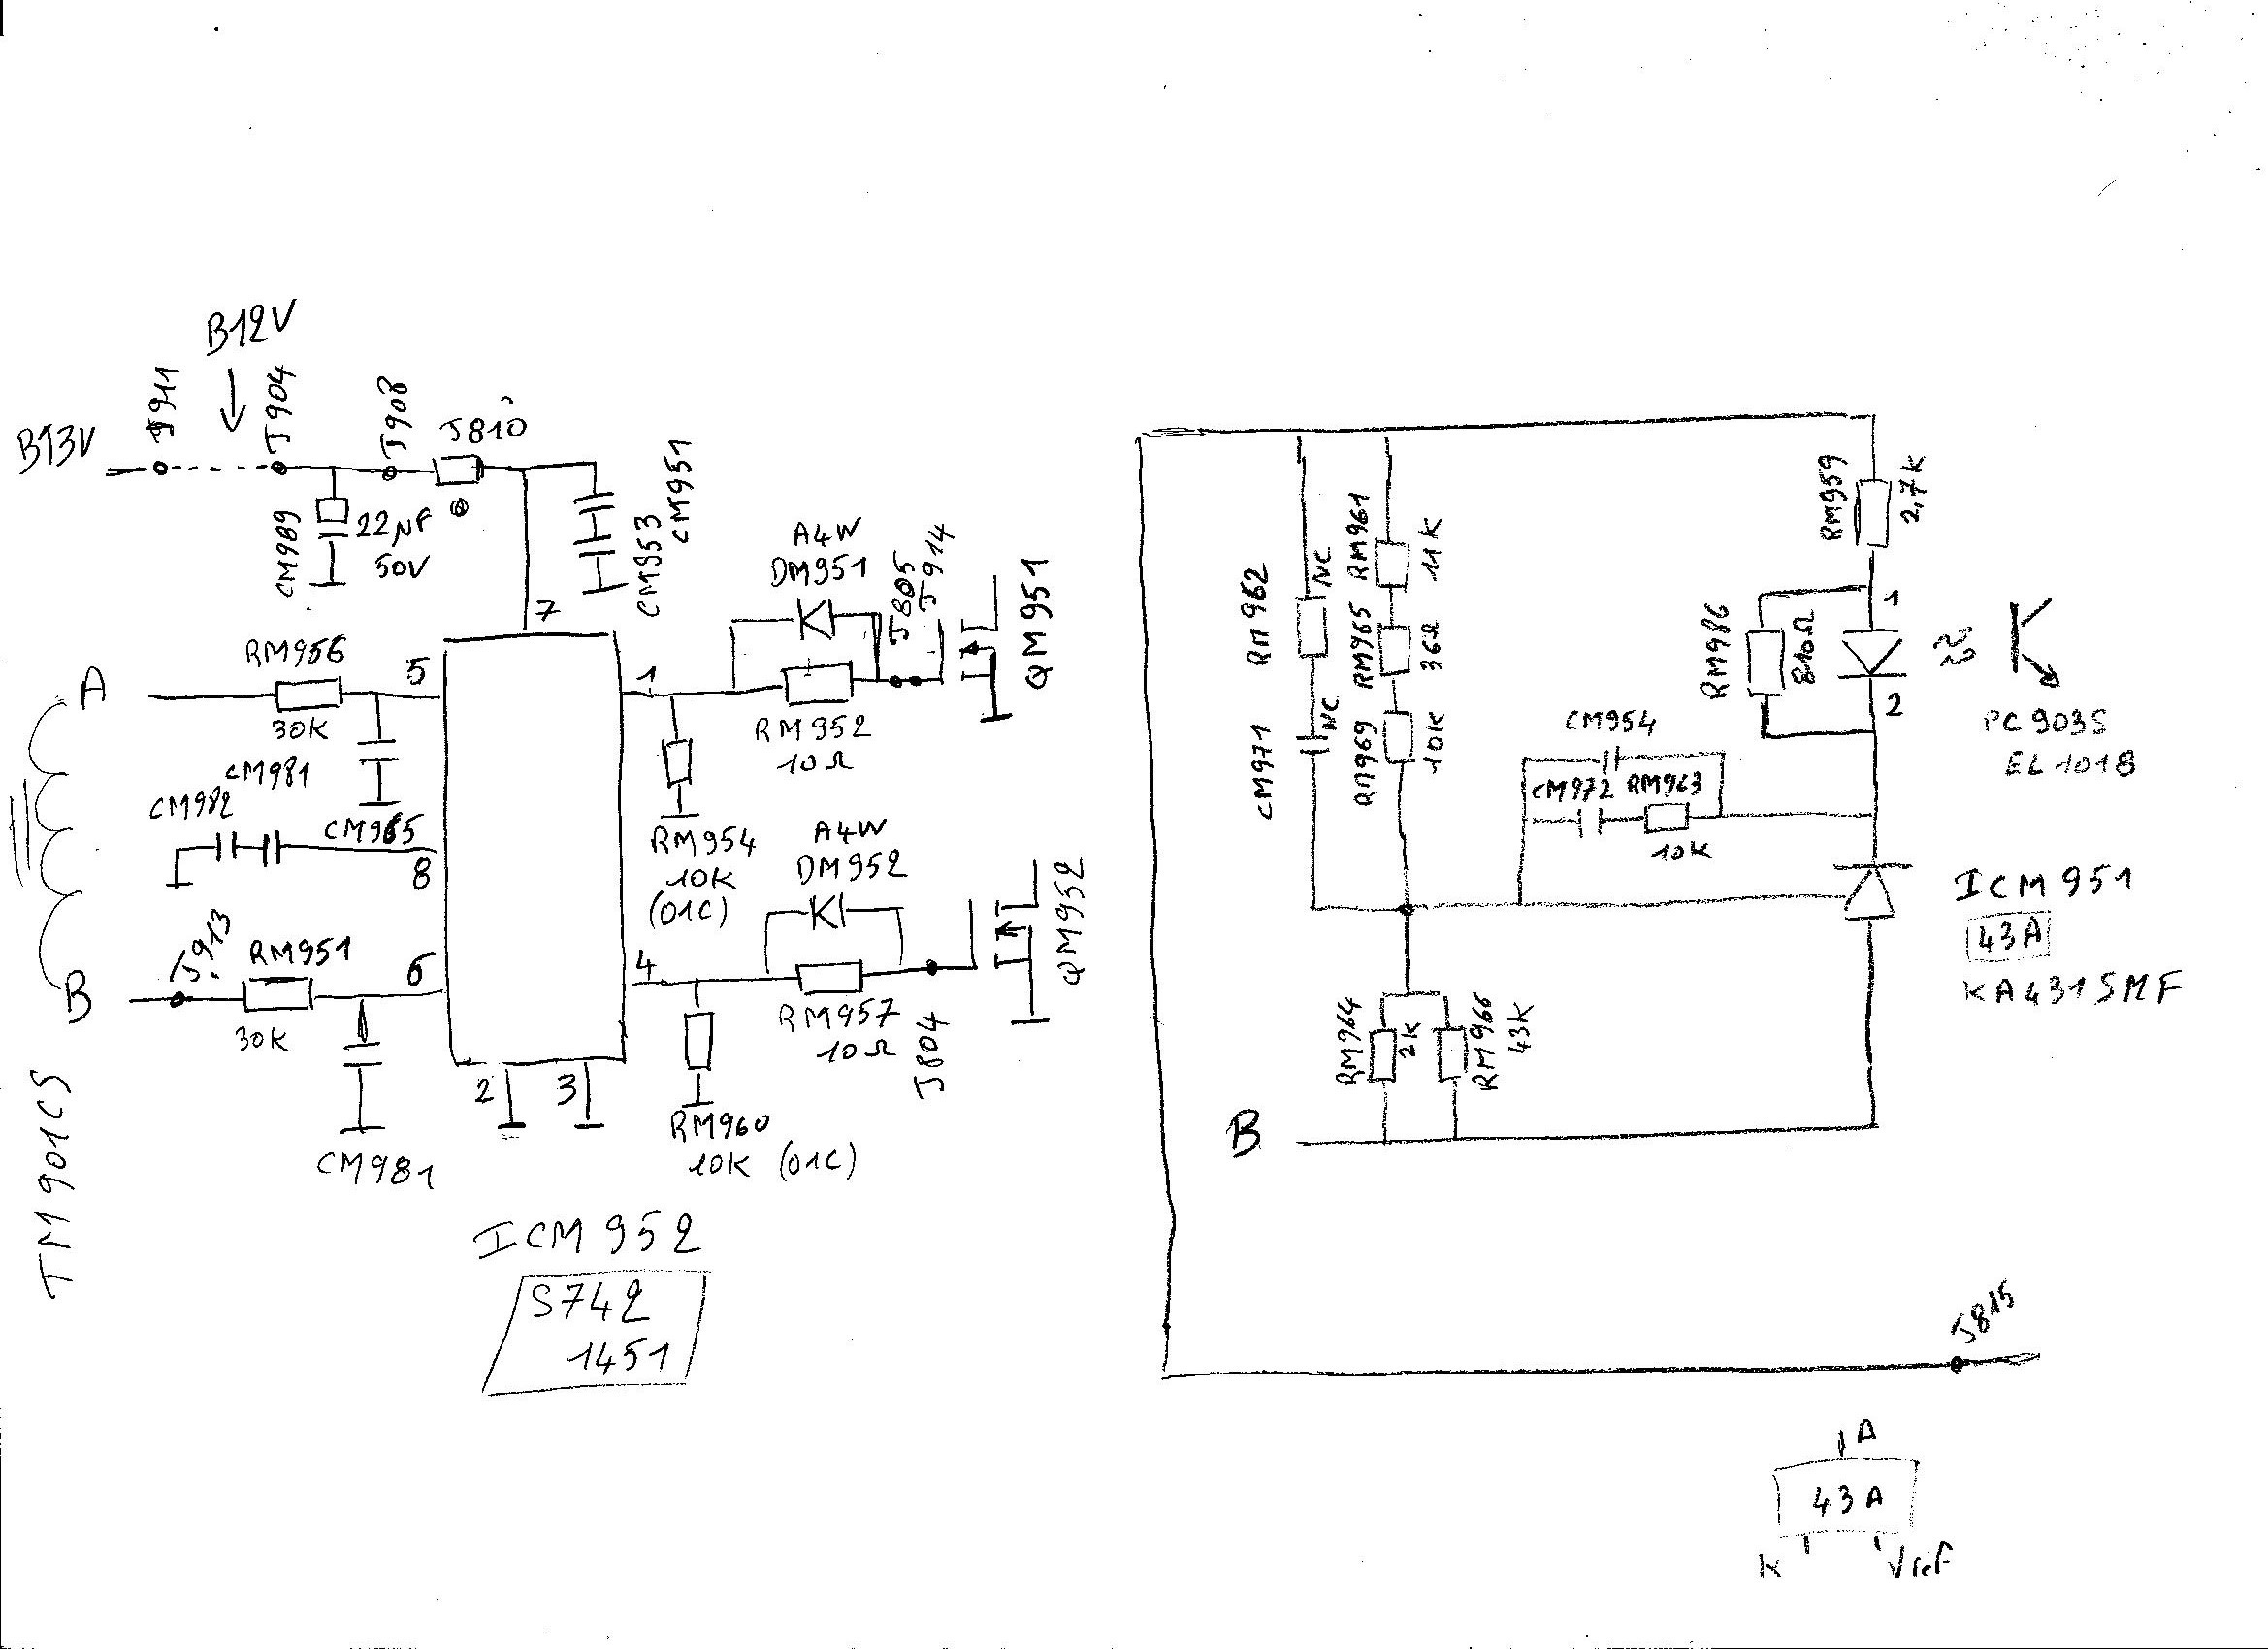 B12V
J911
J904
J908
J810
B13V
CM989
22µF
50V
CM953
CM951
7
A4W
DM951
J805
J914
QM951
A
RM956
30K
5
1
CM981
RM952
10Ω
CM982
CM965
8
RM954
10K
(01C)
A4W
DM952
QM952
B
J913
RM951
30K
6
4
RM957
10Ω
J804
2
3
CM981
RM960
10K (01C)
TM901CS
ICM952
S742
1451
RM959
2,7K
RM962
NC
RM961
11K
CM971
NC
RM965
36Ω
RM969
10K
RM986
810Ω
1
2
PC903S
EL1018
CM954
CM972 RM963
10K
ICM951
43A
KA431SMF
RM964
2K
RM966
43K
B
J815
A
43A
K
Vref